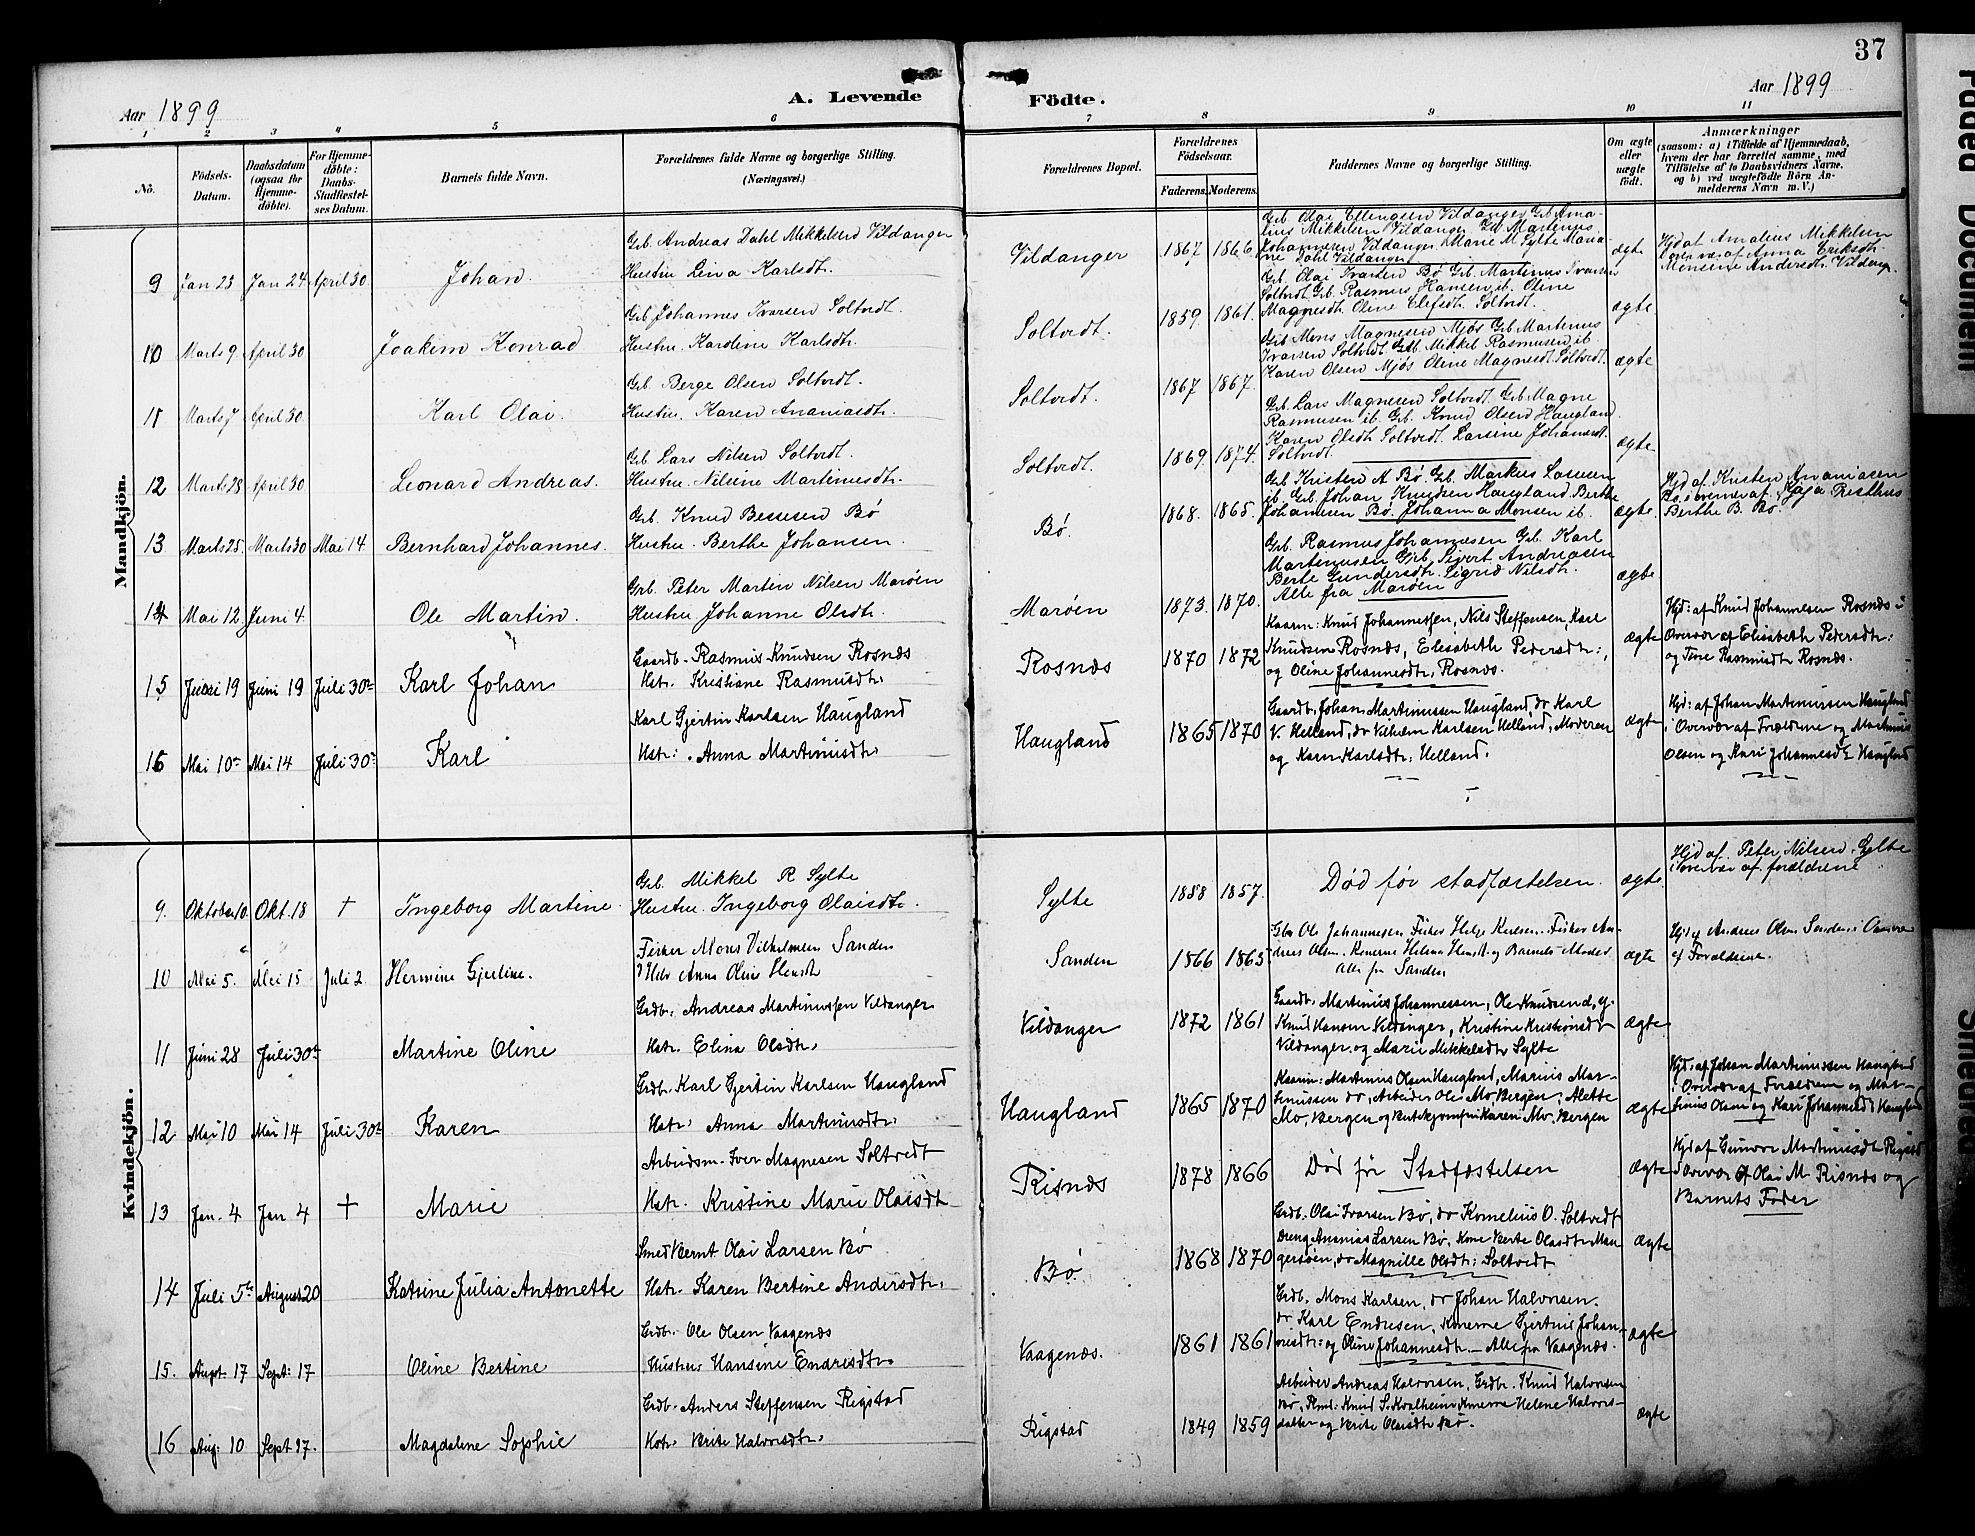 37
Aar 1899
A. Levende Födte.
Aar 1899
1 2 3 4 5 6 7 8 9 10 11
No.
Födsels-
Datum.
Daabsdatum
(ogsaa for
Hjemme-
döbte).
For Hjemme-
döbte:
Daabs-
Stadfæstel-
ses Datum.
Barnets fulde Navn.
Forældrenes fulde Navne og borgerlige Stilling.
(Næringsvei.)
Forældrenes Bopæl.
Forældrenes
Födselsaar.
Faderens. Moderens.
Faddernes Navne og borgerlige Stilling.
Om ægte
eller
uægte
födt.
Anmærkninger
(saasom: a) i Tilfælde af Hjemmedaab,
hvem der har forrettet samme, med
Tilföielse af to Daabsvidners Navne,
og b) ved uægtefödte Börn An-
melderens Navn m. V.)
Mandkjön.
9 Jan 23 Jan 24 April 30 Johan
Grb. Andreas Dahl Mikkelsen Vildanger
Hustru Lina Karlsdt.
Vildanger 1867 1866
Grb. Olai Ellingsen Vildanger Grb Ama-
lius Mikkelsen Vildanger Grb Martenus
Johannesen Vildanger Marie M Sylte Maria-
ne Dahl Vildanger
ægte
Hjd af Amalius Mikkelsen
overvær af Anna Eriksdt.
Monsine Andersdt. Vildang.
10 Marts 9 April 30 Joakim Konrad
Grb Johannes Ivarsen Soltvedt.
Hustru. Karoline Karlsdtr.
Soltvedt. 1859. 1861.
Grb. Olai Ivarsen Bö Grb. Martinus Ivarsen
Soltvedt Grb. Rasmus Hansen ib. Oline
Magnesdt. Oline Olefsdt. Soltvedt.
ægte.
11 Marts 7 April 30 Karl Olai.
Grb. Berge Olsen Soltvedt.
Hustru. Karen Ananiasdtr.
Soltvedt. 1867 1867.
Grb Mons Magnesen Mjös Grb. Martenus
Ivarsen Soltvedt Grb. Mikkel Rasmusen ib
Karen Olsen Mjös Oline Magnesdt. Soltvedt.
ægte
12 Marts 28 April 30 Leonard Andreas.
Grb. Lars Nilsen Soltvedt.
Hustru. Nilsine Martinusdtr.
Soltvedt. 1869. 1874.
Grb. Lars Magnesen Soltvedt Grb. Magne
Rasmusen ib. Grb. Knud Olsen Haugland.
Karen Olsdt. Soltvedt. Larsine Johannsdt.
Soltvedt.
ægte
13 Marts 25. Marts 30 Mai 14 Bernhard Johannes.
Grb. Knud Bessesen Bö
Hustru. Berthe Johansen.
Bö. 1868. 1865.
Grb Kristen A Bö. Grb. Markus Larsen
ib. Grb. Johan Knudsen Haugland Berthe
Johannesen Bö. Johanna Monsen ib.
ægte.
Hjd af. Kristen Ananiasen
Bö. i overvær af.
Berthe B. Bö.
14 Mai 12 Juni 4. Ole Martin.
Grb. Peter Martin Nilsen Maröen
Hustru Johanne Olsdt.
Maröen 1873. 1870.
Grb. Rasmus Johannesen Grb. Karl
Martinusen Grb. Sigvert Andreasen
Berte Gundersdt. Sigrid Nilsdt.
Alle fra Maröen
ægte
15 Juni 19 Juni 19 Juli 30te Karl Johan
Gaardb. Rasmus Knudsen Rosnæs
Hstr. Kristiane Rasmusdtr.
Rosnæs 1870 1872
Kaarm: Knud Johannessen, Nils Steffensen, Karl
Knudsen Rosnæs, Elisabeth Pedersdtr:,
og Oline Johannesdtr, Rosnæs.
ægte
Hjd: af Knud Johannesen Rosnæs i
Overvær af Elisabeth Pedersdtr:
og Tine Rasmusdtr Rosnæs.
16 Mai 10de Mai 14 Juli 30te Karl
Karl Gjertin Karlsen Haugland
Hstr: Anna Martinusdtr.
Haugland 1865 1870
Gaardb: Johan Martinussen Haugland, do Karl
V. Helland, do Vilhelm Karlsen Helland, Moderen
og Karen Karlsdtr: Helland.
ægte
Hjd: af Johan Martinussen Haugland
i Overvær af Forældrene og Martinus
Olsen og Kari Johannesdtr Haugland
Kvindekjön.
9. Oktober 10. Okt. 18 † Ingeborg Martine.
Grb. Mikkel R Sylte
Hustru. Ingeborg Olaisdtr.
Sylte 1858 1857.
Död för stadfæstelsen.
ægte
Hjd af. Peter Nilsen Sylte
i overvær af forældrene
10 Mai 5. Mai 15 Juli 2. Hermine Gjertine.
Fisker Mons Vilhelmsen Sanden
Hstr Anna Oline
Sanden 1866 1865
Gbr Ole Johannesen Fisker Helge Knudsen. Fisker An-
dreas Olsen. Konerne Helene og Barnets Moder.
Alle fra Sanden
ægte
Hjd af Andreas Olsen Sanden i Overvær
af Forældrene.
11 Juni 28 Juli 30te Martine Oline
Grdb: Andreas Martinussen Vildanger
Hstr. Elina Olsdtr.
Vildanger 1872 1861
Gaardb: Martinus Johannessen, Ole Knudsen d. y.
Knud Hansen Vildanger, Kristine Kristiansdtr
Vildanger og Marie Mikkelsdtr Sylte
ægte
12 Mai 10 Mai 14 Juli 30te Karen
Grdb: Karl Gjertin Karlsen Haugland
Hstr. Anna Martinusdtr.
Haugland 1865 1870
Kaarm: Martinus Olsen Haugland, Marius Mar-
tinussen do, Arbeider Ole Mo Bergen, Alette
Mo, Bergen og Butikjomfru Karen Mo, Bergen
ægte
Hjd: af Johan Martinussen Haugland
i Overvær af Forældrene og Mar-
tinius Olsen og Kari Johannesdtr Haugland
13 Jan. 4 Jan 4 † Marie
Arbeidsm. Iver Magnesen Soltvedt
Hstr. Kristine Marie Olaisdtr
Risnæs 1878 1866
Död för Stadfæstelsen
ægte
Hjd af Gunvor Martinusdtr Rigstad
i Overvær af Olai M. Risnæs og
Barnets Fader
14 Juli 5te August 20 Katrine Julia Antonette
Smed Bernt Olai Larsen Bö
Hstr. Karen Bertine Andersdtr:
Bö. 1868 1870
Grdb. Olai Ivarsen Bö, do Kornelius O. Soltvedt
Dreng Ananias Larsen Bö, Kone Berte Olasdtr Man-
gersöen, do Magnille Olsdtr: Soltvedt
ægte
15. August 17 Sept: 17 Oline Bertine
Grdb. Ole Olsen Vaagenæs
Hustru Hansine Endresdtr.
Vaagenæs. 1861 1861
Grdb. Mons Karlsen, do Johan Halvorsen.
do Karl Endresen, Konerne Gjertine Johan-
nesdtr: og Oline Johannesdtr. – Alle fra Vaagenæs.
ægte
16 Aug: 10 Sept 17. Magdalene Sophie
Grdb. Anders Steffensen Rigstad
Hstr. Brite Halvorsdtr.
Rigstad 1849 1859
Arbeider Andreas Halvorsen, Grdbr. Knud Halvorsen
Bö, Pkml: Knud S. Kvalheim Konerne Helene Halvors-
datter og Brite Olaisdtr Bö.
ægte
Faded Document
Smeared